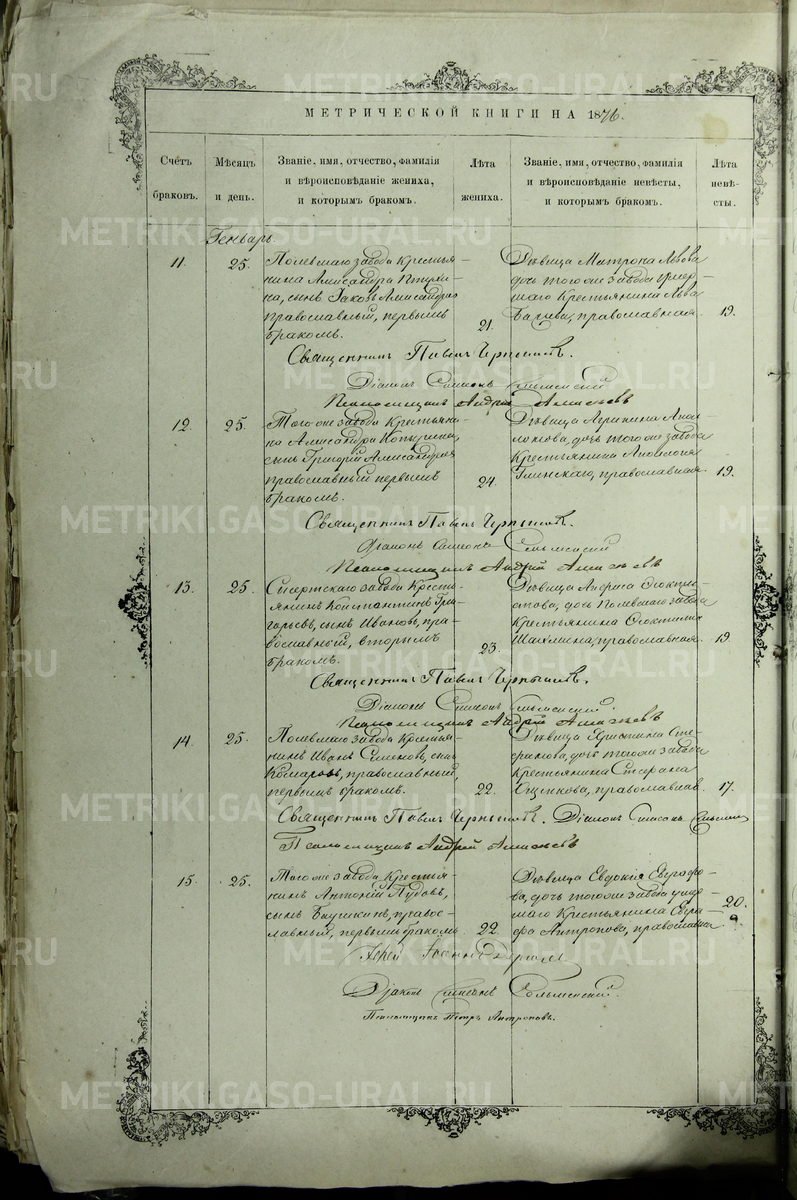 МЕТРИЧЕСКОЙ КНИГИ НА 1876.
Счётъ браковъ.
Мѣсяцъ и день.
Званіе, имя, отчество, фамилія
и вѣроисповѣданіе жениха,
и которымъ бракомъ.
Лѣта жениха.
Званіе, имя, отчество, фамилія
и вѣроисповѣданіе невѣсты,
и которымъ бракомъ.
Лѣта невѣсты.
Генварь.
11. 25.
Полевскаго завода крестья-
нина Александра
на, сынъ Іаковъ Александровъ
православный, первымъ
бракомъ.
21.
Дѣвица Матрона Львова
дочь того же завода умер-
шаго Крестьянина Льва
православная. 19.
Священникъ Павелъ Чернышевъ.
Діаконъ Симеонъ Сельменскій
Псаломщикъ Андрей
12. 25.
Того же завода Крестьяни-
на Александра
сынъ Григорій Александровъ
православный первымъ
бракомъ.
24.
Дѣвица Агрипина
дочь того же завода
Крестьянина
Глинскаго, православная. 19.
Священникъ Павелъ Чернышевъ.
Діаконъ Симеонъ Сельменскій
Псаломщикъ Андрей
13. 25.
Сысертскаго завода Кресть-
янинъ Константинъ Гри-
горьевъ, сынъ Ивановъ, пра-
вославный, вторымъ
бракомъ.
23.
Дѣвица
дочь Полевскаго завода
Крестьянина
православная. 19.
Священникъ Павелъ Чернышевъ.
Діаконъ Симеонъ Сельменскій.
Псаломщикъ Андрей
14. 25.
Полевскаго завода Крестья-
нинъ Иванъ Семеновъ, сынъ
Комаровъ, православный,
первымъ бракомъ.
22.
Дѣвица Христина Сте-
фанова, дочь того же завода
Крестьянина Стефана
православная. 17.
Священникъ Павелъ Чернышевъ. Діаконъ Симеонъ Сельменскій
Псаломщикъ Андрей
15. 25.
Того же завода Крестья-
нинъ Антоній Пудовъ,
сынъ правос-
лавный, первымъ бракомъ
22.
Дѣвица Евдокія Еврафо-
ва, дочь того же завода умер-
шаго Крестьянина Евра-
фа Антропова, православная. 20.
Іерей Іоаннъ
Діаконъ Симеонъ Сельменскій.
Псаломщикъ Петръ Антроповъ.
METRIKI.GASO-URAL.RU